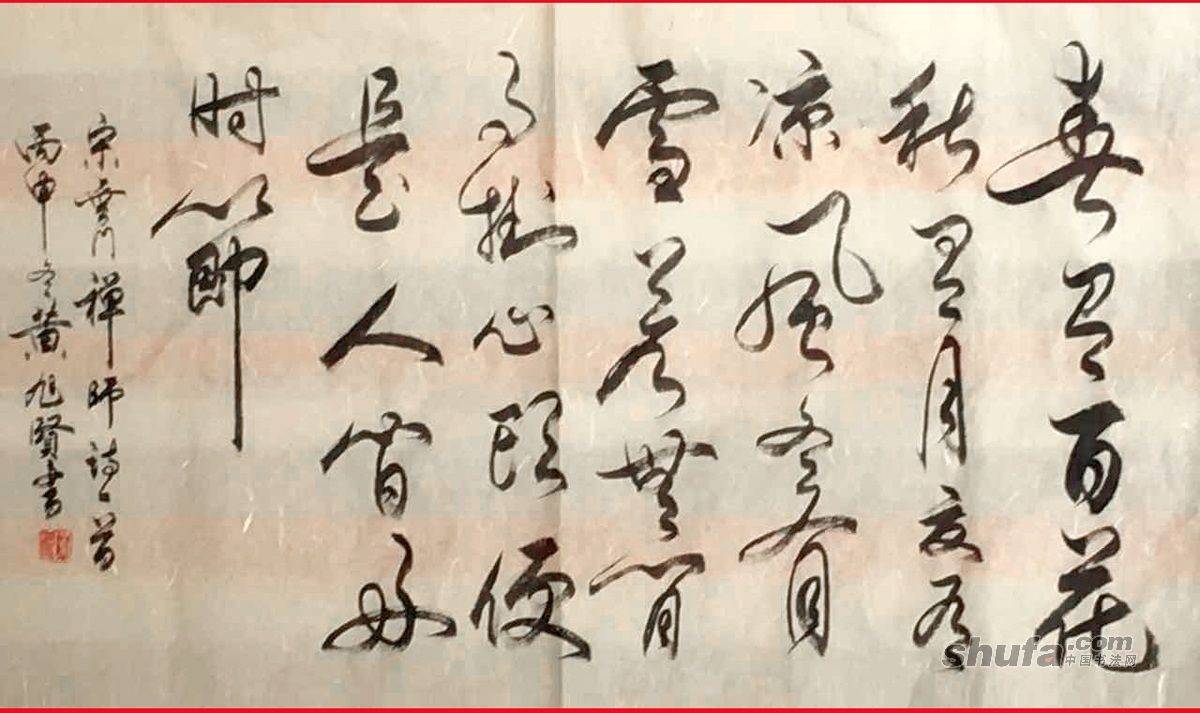 春有百花
秋有月夏有
凉风冬有
雪若无闲
事挂心头便
是人间好
时節
宋雲门禅师詩一首
丙申冬黄旭賢书
shufa.com
中国书法网